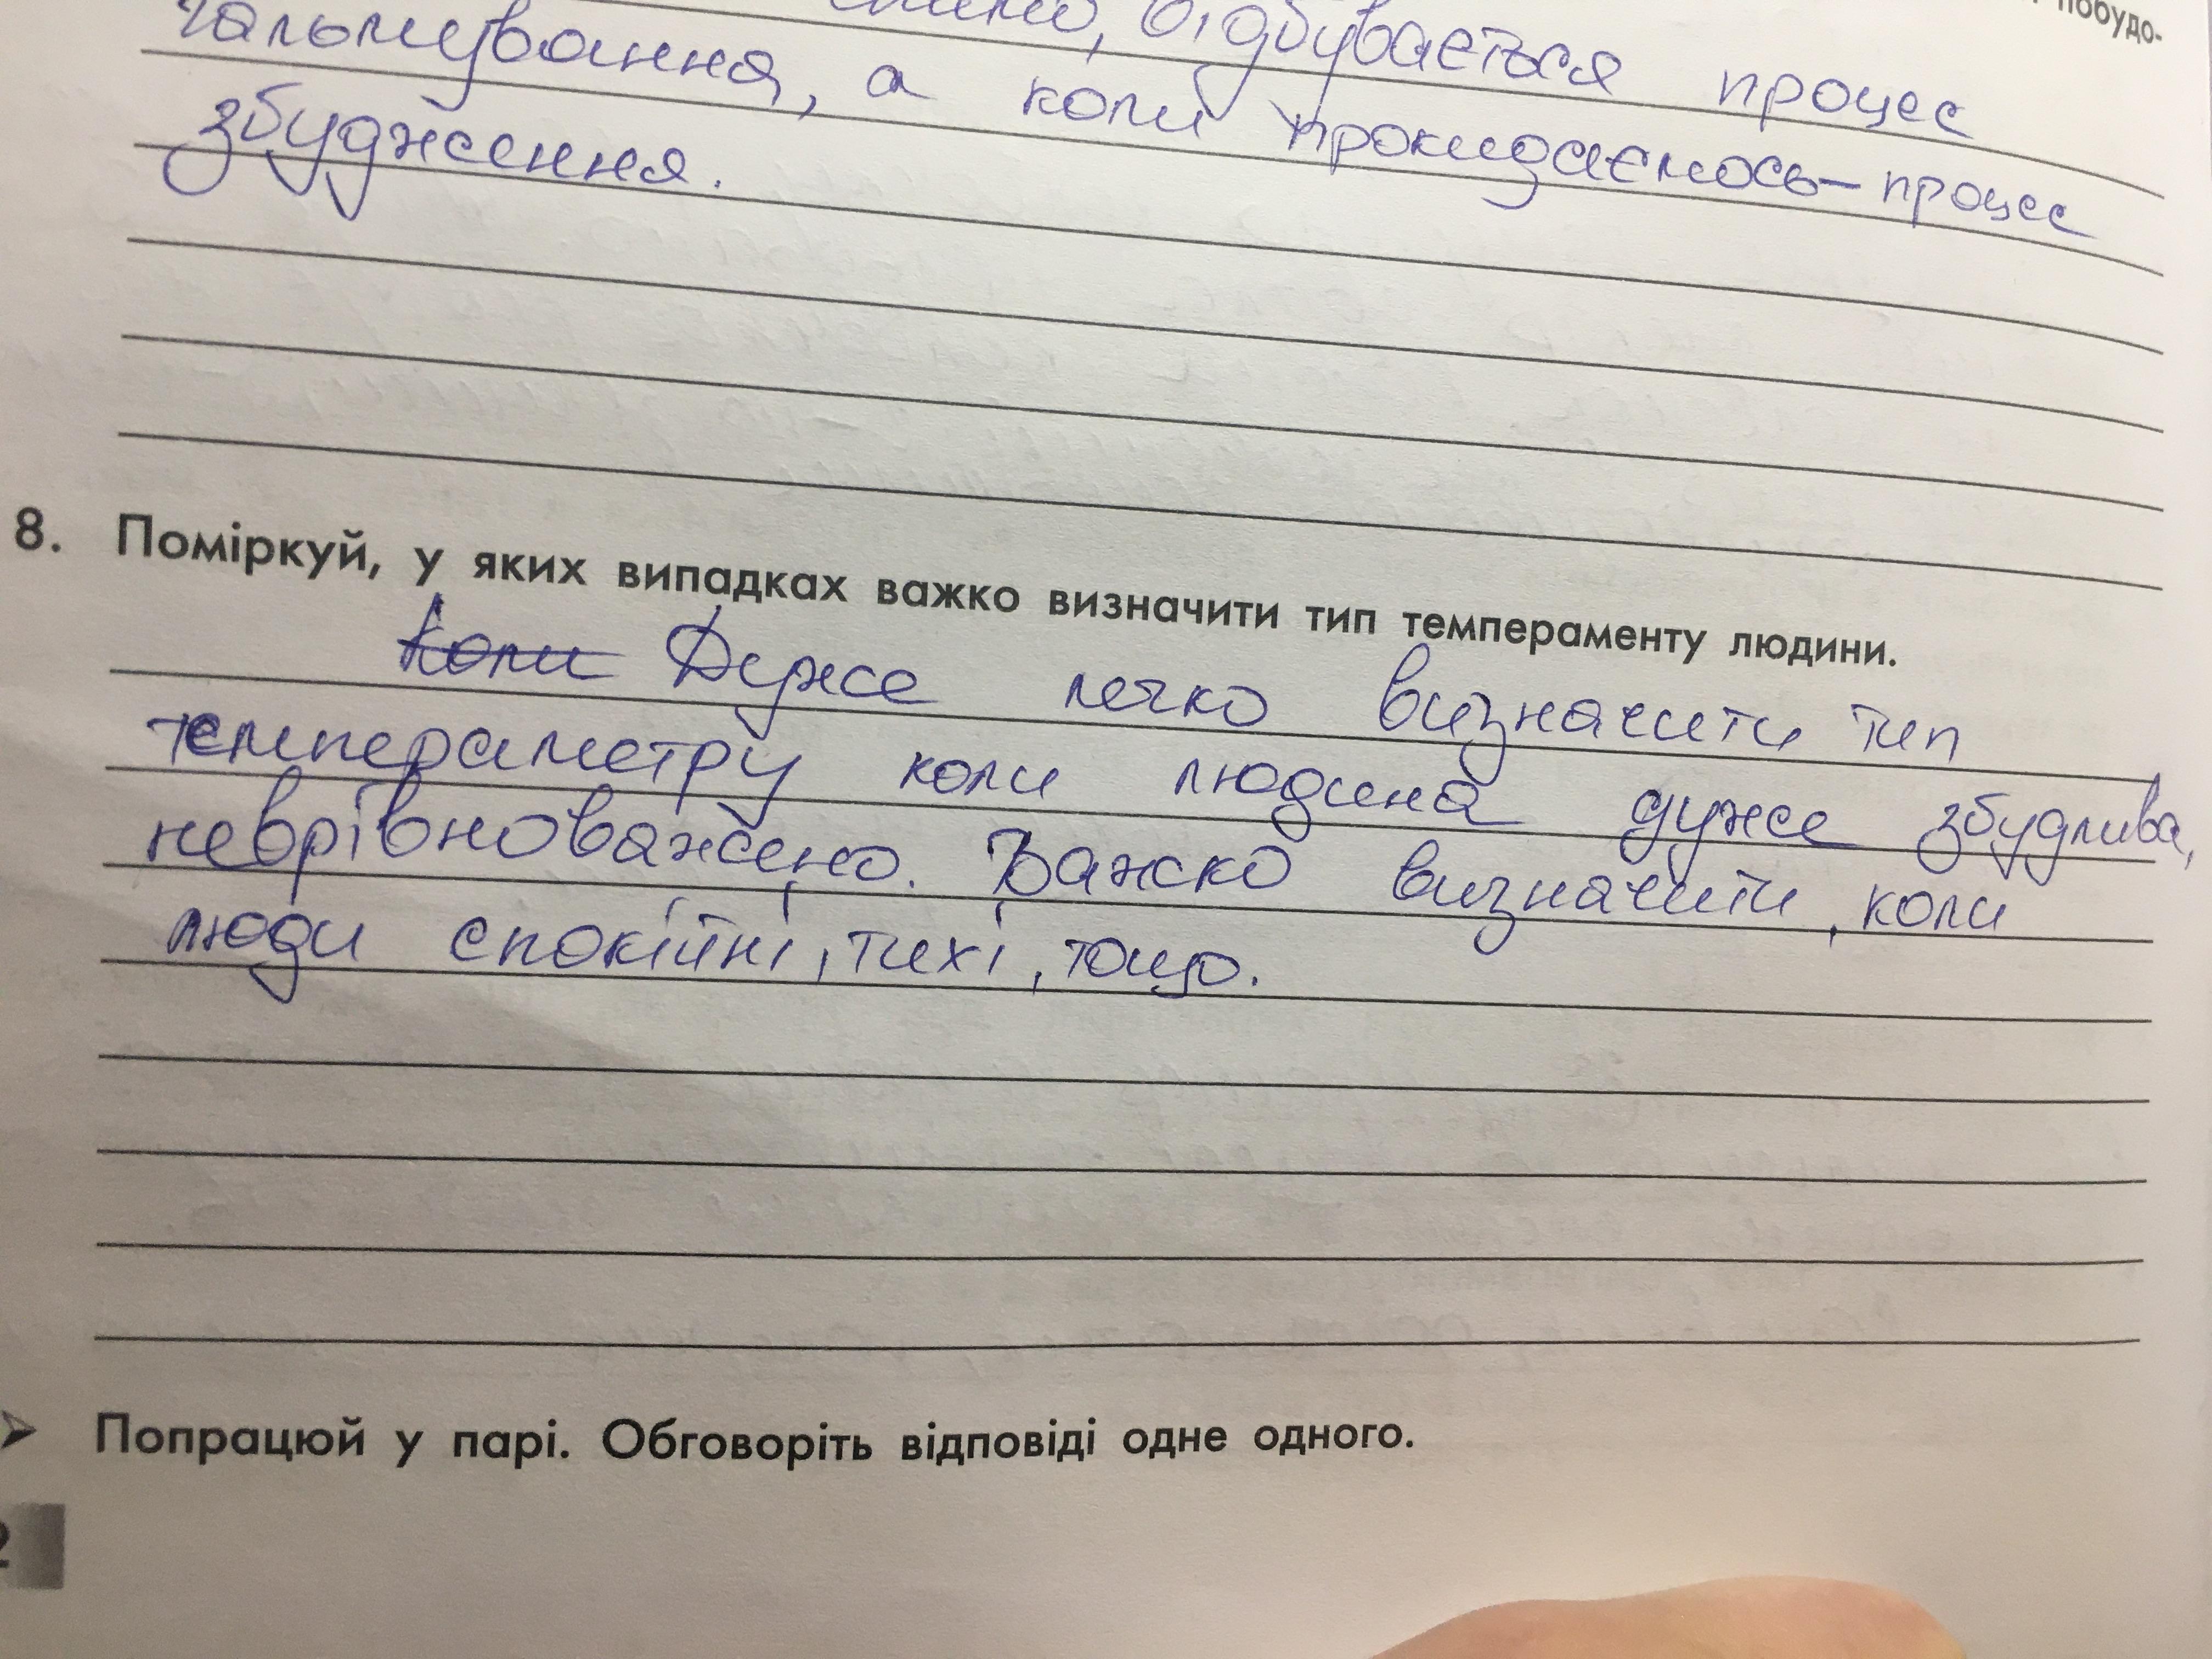 побудо-
відбувається процес
гальмування, а коли прокидаємось – процес
збудження.
8. Поміркуй, у яких випадках важко визначити тип темпераменту людини.
Коли Дуже легко визначити тип
темпераметру коли людина дуже збудлива,
неврівноважено. Важко визначити, коли
люди спокійні, тихі, тощо.
➤ Попрацюй у парі. Обговоріть відповіді одне одного.
2